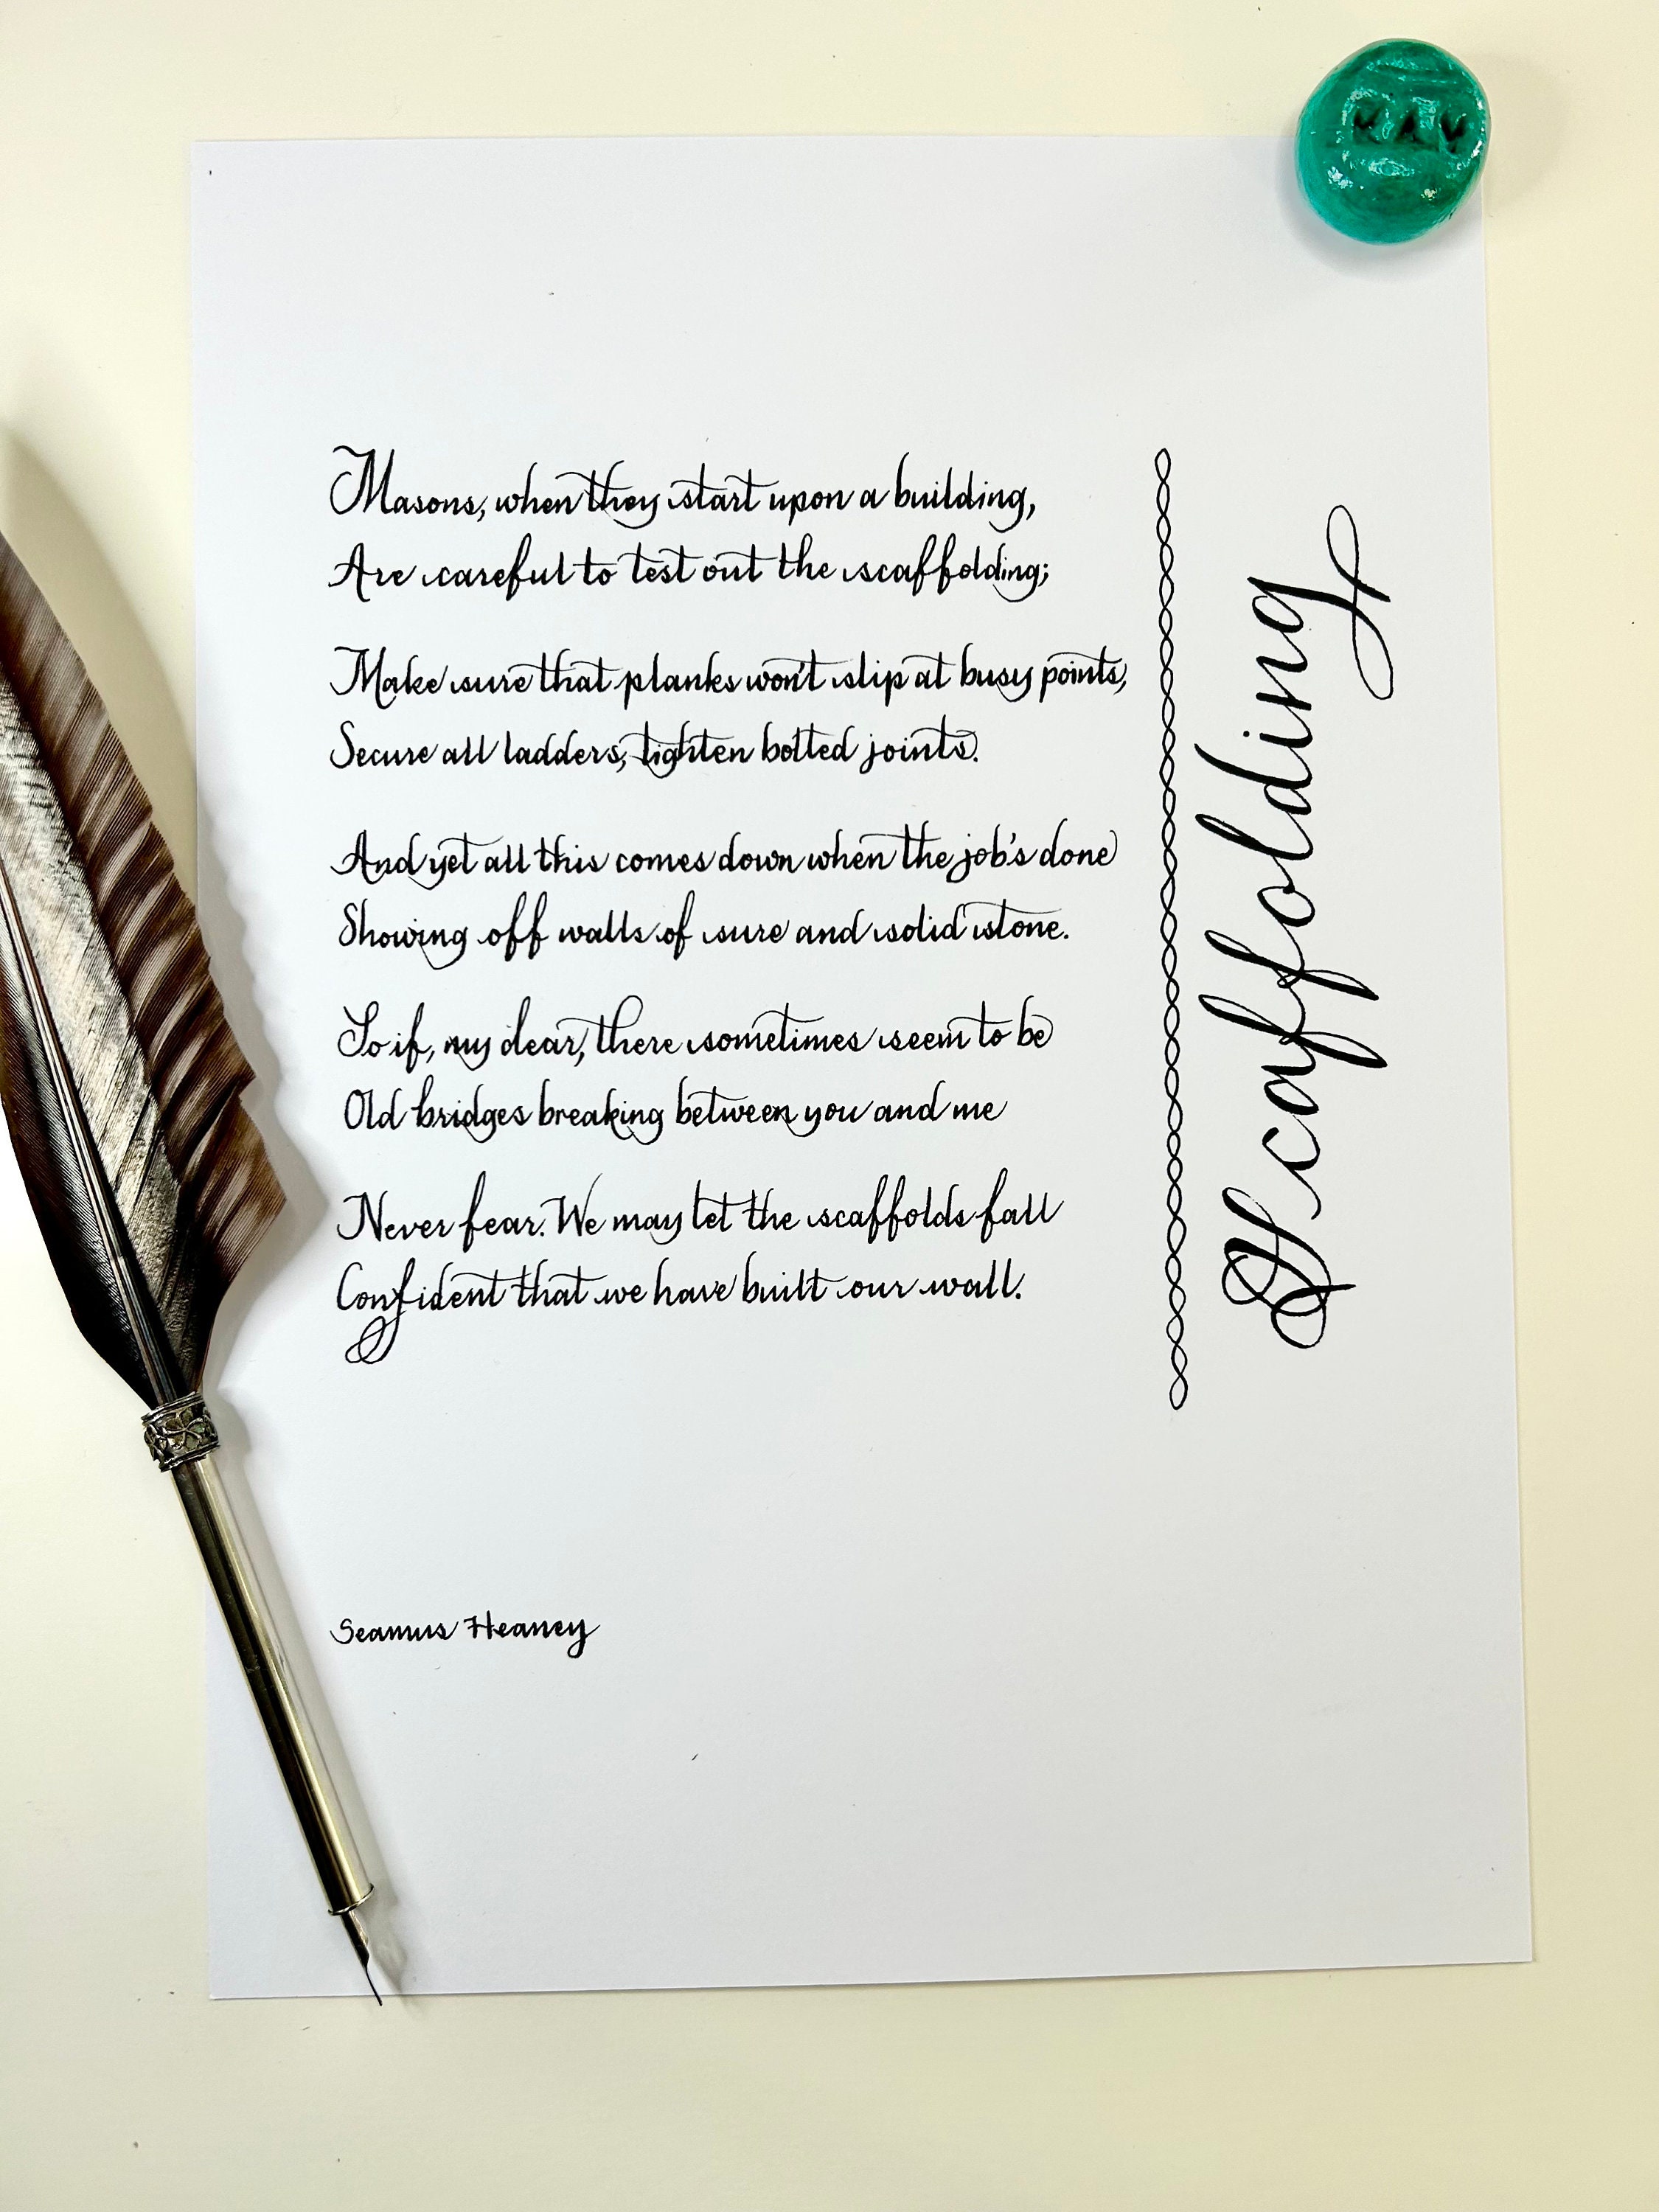 KAY
Masons, when they start upon a building,
Are careful to test out the scaffolding;
Make sure that planks won't slip at busy points,
Secure all ladders, tighten bolted joints.
And yet all this comes down when the job's done
Showing off walls of sure and solid stone.
So if, my dear, there sometimes seem to be
Old bridges breaking between you and me
Never fear. We may let the scaffolds fall
Confident that we have built our wall.
Scaffolding
Seamus Heaney